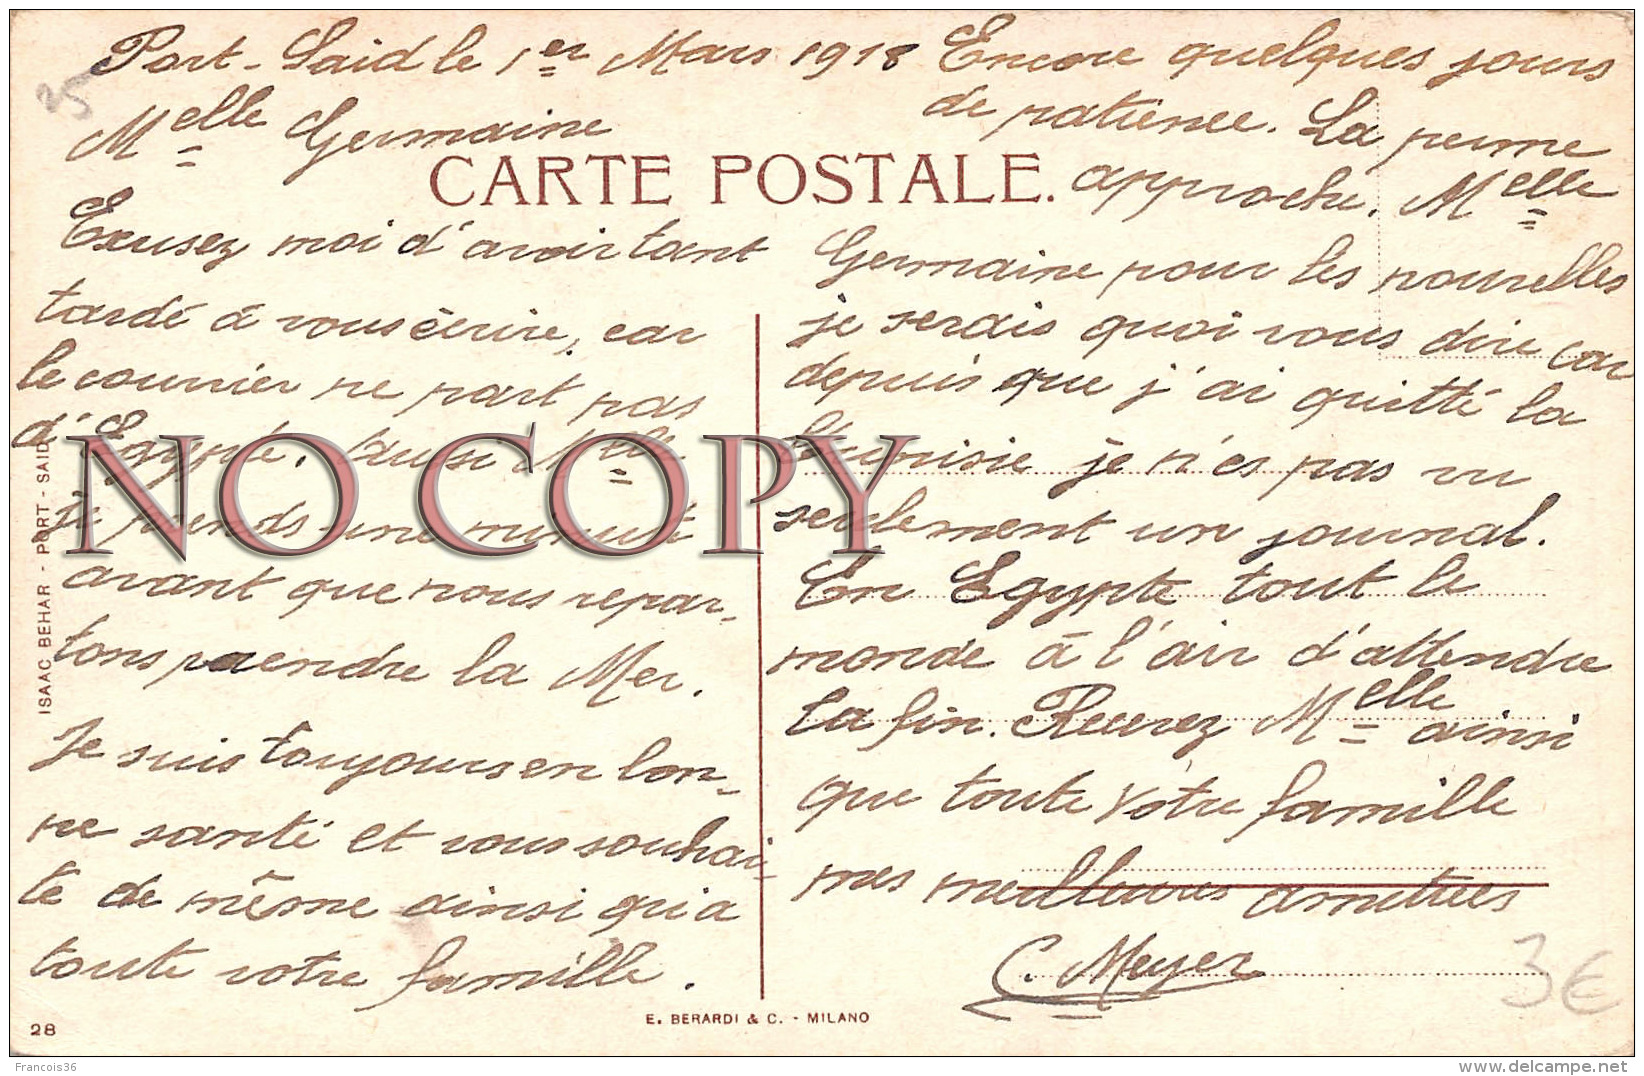 Port-Said le 1er Mars 1918
25
Melle Germaine
CARTE POSTALE.
Exusez moi d'avoir tant
tardé à vous écrire, car
le courrier ne part pas
d'Egypte. Aussi Melle
je prends une minute
avant que nous repar-
tons prendre la Mer.
Je suis toujours en bon-
ne santé et vous souhai-
te de même ainsi qu'a
toute votre famille.
Encore quelques jours
de patience. La perme
approche. Melle
Germaine pour les nouvelles
je serais quoi vous dire car
depuis que j'ai quitté la
Tunisie je n'es pas vu
seulement un journal.
En Egypte tout le
monde à l'air d'attendre
la fin. Recevez Melle ainsi
que toute votre famille
mes meilleures amitiées
C. Meyer
3€
NO COPY
ISAAC BEHAR - PORT - SAID
28
E. BERARDI & C. - MILANO
Francois36
www.delcampe.net